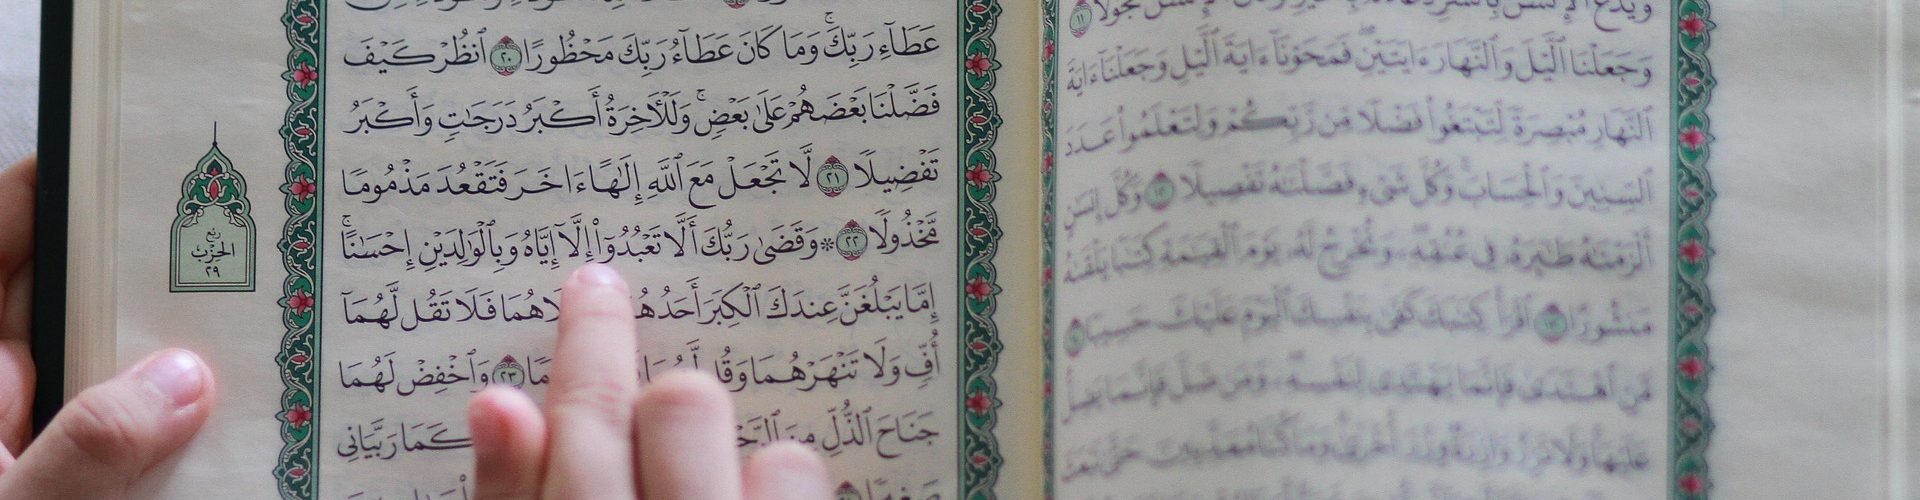 وَيَدْعُ ٱلْإِنسَٰنُ بِٱلشَّرِّ دُعَآءَهُۥ بِٱلْخَيْرِ وَكَانَ ٱلْإِنسَٰنُ عَجُولًا ١١
وَجَعَلْنَا ٱلَّيْلَ وَٱلنَّهَارَ ءَايَتَيْنِ ۖ فَمَحَوْنَآ ءَايَةَ ٱلَّيْلِ وَجَعَلْنَآ ءَايَةَ
ٱلنَّهَارِ مُبْصِرَةً لِّتَبْتَغُوا۟ فَضْلًا مِّن رَّبِّكُمْ وَلِتَعْلَمُوا۟ عَدَدَ
ٱلسِّنِينَ وَٱلْحِسَابَ ۚ وَكُلَّ شَىْءٍ فَصَّلْنَٰهُ تَفْصِيلًا ١٢ وَكُلَّ إِنسَٰنٍ
أَلْزَمْنَٰهُ طَٰٓئِرَهُۥ فِى عُنُقِهِۦ ۖ وَنُخْرِجُ لَهُۥ يَوْمَ ٱلْقِيَٰمَةِ كِتَٰبًا يَلْقَىٰهُ
مَنشُورًا ١٣ ٱقْرَأْ كِتَٰبَكَ كَفَىٰ بِنَفْسِكَ ٱلْيَوْمَ عَلَيْكَ حَسِيبًا ١٤
مَّنِ ٱهْتَدَىٰ فَإِنَّمَا يَهْتَدِى لِنَفْسِهِۦ ۖ وَمَن ضَلَّ فَإِنَّمَا يَضِلُّ
عَلَيْهَا ۚ وَلَا تَزِرُ وَازِرَةٌ وِزْرَ أُخْرَىٰ ۗ وَمَا كُنَّا مُعَذِّبِينَ حَتَّىٰ نَبْعَثَ
عَطَآءِ رَبِّكَ ۚ وَمَا كَانَ عَطَآءُ رَبِّكَ مَحْظُورًا ٢٠ ٱنظُرْ كَيْفَ
فَضَّلْنَا بَعْضَهُمْ عَلَىٰ بَعْضٍ ۚ وَلَلْءَاخِرَةُ أَكْبَرُ دَرَجَٰتٍ وَأَكْبَرُ
تَفْضِيلًا ٢١ لَّا تَجْعَلْ مَعَ ٱللَّهِ إِلَٰهًا ءَاخَرَ فَتَقْعُدَ مَذْمُومًا
مَّخْذُولًا ٢٢ ۞ وَقَضَىٰ رَبُّكَ أَلَّا تَعْبُدُوٓا۟ إِلَّآ إِيَّاهُ وَبِٱلْوَٰلِدَيْنِ إِحْسَٰنًا ۚ
إِمَّا يَبْلُغَنَّ عِندَكَ ٱلْكِبَرَ أَحَدُهُ لَاهُمَا فَلَا تَقُل لَّهُمَآ
أُفٍّ وَلَا تَنْهَرْهُمَا وَقُل لَّهُمَا مًا ٢٣ وَٱخْفِضْ لَهُمَا
جَنَاحَ ٱلذُّلِّ مِنَ ٱلرَّحْ كَمَا رَبَّيَانِى
ربع
الحزب
٢٩